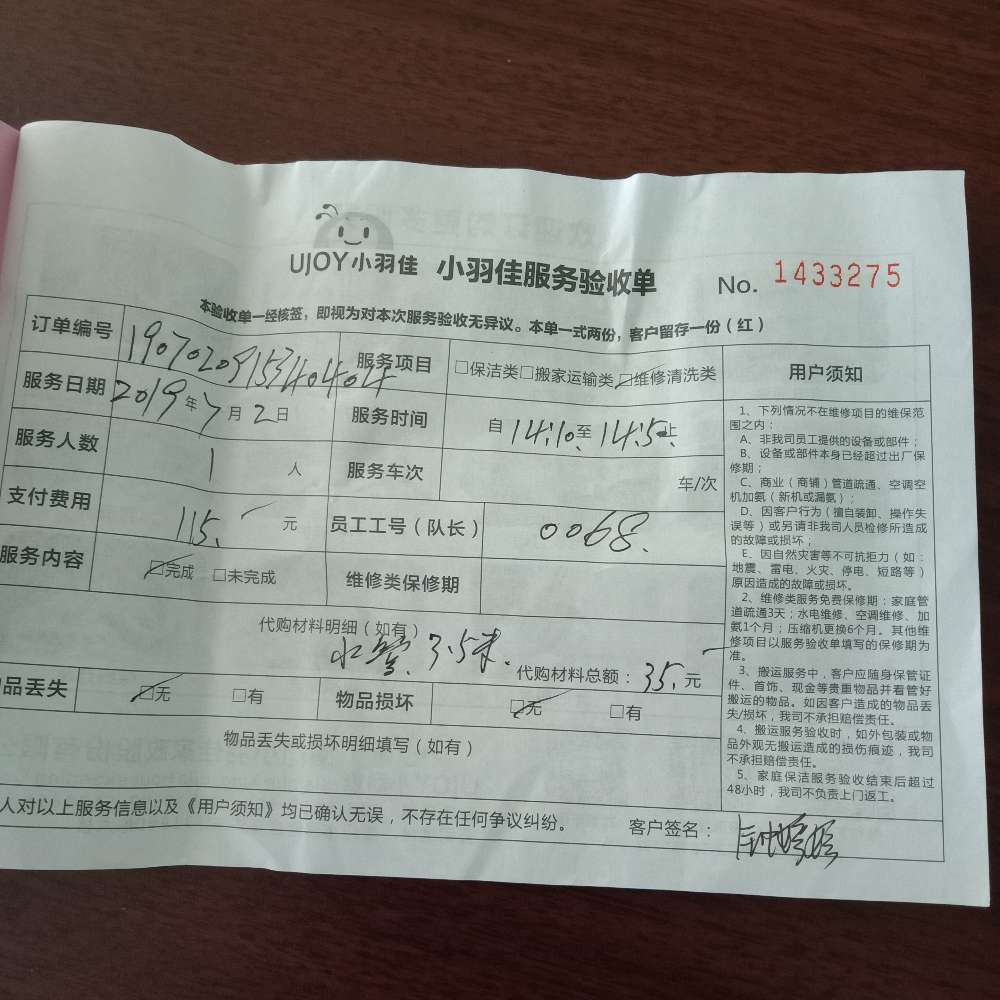 UJOY小羽佳 小羽佳服务验收单 No. 1433275
本验收单一经核签，即视为对本次服务验收无异议。本单一式两份，客户留存一份（红）
订单编号 1907020915340404 服务项目 □保洁类□搬家运输类□维修清洗类
服务日期 2019年7月2日 服务时间 自14:10至14:5止
服务人数 1人 服务车次 车/次
支付费用 115.元 员工工号（队长） 0068.
服务内容 □完成 □未完成 维修类保修期
代购材料明细（如有）
水管 3.5米. 代购材料总额：35.元
品丢失 □无 □有 物品损坏 □无 □有
物品丢失或损坏明细填写（如有）
人对以上服务信息以及《用户须知》均已确认无误，不存在任何争议纠纷。 客户签名：
用户须知
1、下列情况不在维修项目的维保范
围之内：
A、非我司员工提供的设备或部件；
B、设备或部件本身已经超过出厂保
修期；
C、商业（商铺）管道疏通、空调空
机加氨（新机或漏氨）；
D、因客户行为（擅自装卸、操作失
误等）或另请非我司人员检修所造成
的故障或损坏；
E、因自然灾害等不可抗拒力（如：
地震、雷电、火灾、停电、短路等）
原因造成的故障或损坏。
2、维修类服务免费保修期：家庭管
道疏通3天；水电维修、空调维修、加
氨1个月；压缩机更换6个月。其他维
修项目以服务验收单填写的保修期为
准。
3、搬运服务中，客户应随身保管证
件、首饰、现金等贵重物品并看管好
搬运的物品。如因客户造成的物品丢
失/损坏，我司不承担赔偿责任。
4、搬运服务验收时，如外包装或物
品外观无搬运造成的损伤痕迹，我司
不承担赔偿责任。
5、家庭保洁服务验收结束后超过
48小时，我司不负责上门返工。